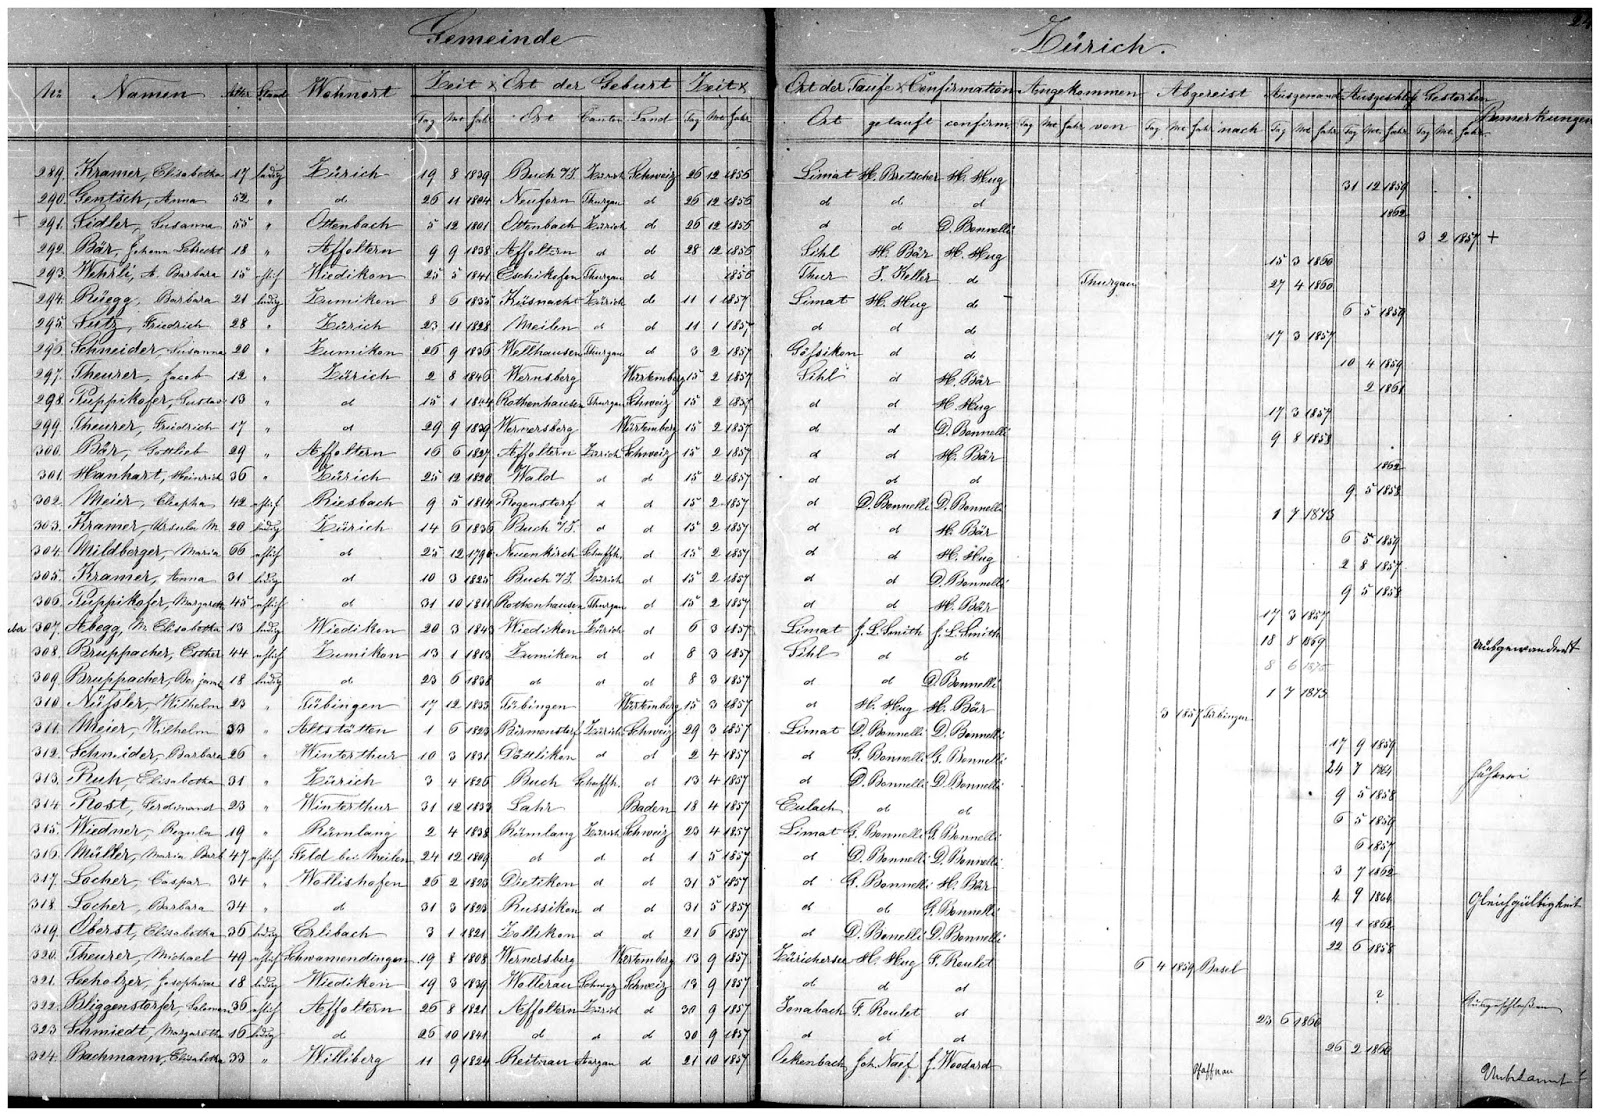 Gemeinde Zürich.
No Namen Alter Stand Wohnort Zeit & Ort der Geburt Zeit & Ort der Taufe & Confirmation Angekommen Abgereist Ausgewand Ausgeschloß Gestorben Bemerkungen
Tag Mot Jahr Ort Canton Land Tag Mot Jahr Ort getauft confirm Tag Mot Jahr von Tag Mot Jahr nach Tag Mot Jahr Tag Mot Jahr Tag Mot Jahr
289. Kramer, Elisabetha 17 ledig Zürich 19 8 1839 Buch a/I. Zürich Schweiz 26 12 1856 Limat H. Bretscher H. Hug 31 12 1859
290. Gentsch, Anna 52 " d 26 11 1804 Neuforn Thurgau d 26 12 1856 d d d 1862
291. Sidler, Susanna 55 " Ottenbach 5 12 1801 Ottenbach Zürich d 26 12 1856 d d D. Bonnelli 3 2 1857 +
292. Bär, Johann 18 " Affoltern 9 9 1838 Affoltern d d 28 12 1856 Sihl H. Bär H. Hug 15 3 1860
293. Wehrli, A. Barbara 15 Wiedikon 25 5 1841 Eschikofen Thurgau d 1856 Thur J. Keller d Thurgau 27 4 1860
294. Rüegg, Barbara 21 ledig Zumikon 8 6 1835 Küsnacht Zürich d 11 1 1857 Limat H. Hug d 6 5 1859
295. Lutz, Friedrich 28 " Zürich 23 11 1828 Meilen d d 11 1 1857 d d d 17 3 1857
296. Schneider, Susanna 20 " Zumikon 26 9 1836 Wellhausen Thurgau d 3 2 1857 Gössikon d d 10 4 1859
297. Theurer, Jacob 12 " Zürich 2 8 1846 Wernsberg Würtemberg 15 2 1857 Sihl d H. Bär 2 1861
298. Puppikofer, Gustav 13 " d 15 1 1844 Rothenhausen Thurgau Schweiz 15 2 1857 d d H. Hug 17 3 1857
299. Theurer, Friedrich 17 " d 29 9 1839 Wernersberg Würtemberg 15 2 1857 d d D. Bonnelli 9 8 1858
300. Bär, Gottlieb 29 " Affoltern 16 6 1827 Affoltern Zürich Schweiz 15 2 1857 d d H. Bär 1862
301. Hanhart, Heinrich 36 " Zürich 25 12 1820 Wald d d 15 2 1857 d d d 9 5 1858
302. Meier, Cleopha 42 Riesbach 9 5 1814 Regenstorf d d 15 2 1857 d D. Bonnelli D. Bonnelli 1 7 1873
303. Kramer, Ursula M. 20 ledig Zürich 14 6 1836 Buch a/I. d d 15 2 1857 d d H. Bär 6 5 1859
304. Mildberger, Maria 66 d 25 12 1790 Neuenkirch Schaffh. d 15 2 1857 d d H. Hug 2 8 1857
305. Kramer, Anna 31 ledig d 10 3 1825 Buch a/I. Zürich d 15 2 1857 d d D. Bonnelli 9 5 1858
306. Puppikofer, Margaretha 45 d 31 10 1811 Rothenhausen Thurgau d 15 2 1857 d d H. Bär 17 3 1857
307. Abegg, M. Elisabetha 13 ledig Wiedikon 20 3 1843 Wiedikon Zürich d 6 3 1857 Limat J. L. Smith J. L. Smith 18 8 1859 Ausgewandert
308. Bruppacher, Esther 44 Zumikon 13 1 1813 Zumikon d d 8 3 1857 Sihl d d 8 6 1875
309. Bruppacher, Benjamin 18 ledig d 23 6 1838 d d d 8 3 1857 D. Bonnelli 1 7 1873
310. Nüfsler, Wilhelm 23 " Tübingen 17 12 1833 Tübingen Würtemberg 15 3 1857 d H. Hug H. Bär 3 1857 Tübingen
311. Meier, Wilhelm 33 " Altstätten 1 6 1823 Birmenstorf Zürich Schweiz 29 3 1857 Limat D. Bonnelli D. Bonnelli 17 9 1859
312. Schneider, Barbara 26 " Winterthur 10 3 1831 Dättlikon d d 2 4 1857 d G. Bonnelli G. Bonnelli 24 7 1864
313. Ruh, Elisabetha 31 " Zürich 3 4 1826 Buch Schaffh. d 13 4 1857 d D. Bonnelli D. Bonnelli 9 5 1858
314. Rost, Ferdinand 23 " Winterthur 31 12 1833 Lahr Baden 18 4 1857 Eulach d d 6 5 1859
315. Wiedner, Regula 19 " Rümlang 2 4 1838 Rümlang Zürich Schweiz 23 4 1857 Limat G. Bonnelli G. Bonnelli 6 1857
316. Müller, Maria Barb 47 Feld bei Meilen 24 12 1809 d d d 1 5 1857 d D. Bonnelli D. Bonnelli 3 7 1862
317. Locher, Caspar 34 " Wollishofen 26 2 1823 Dietikon d d 31 5 1857 d G. Bonnelli H. Bär 4 9 1864 Gleichgültigkeit
318. Locher, Barbara 34 " d 31 3 1823 Russikon d d 31 5 1857 d d G. Bonnelli 19 1 1862
319. Oberst, Elisabetha 36 ledig Erlibach 3 1 1821 Zollikon d d 21 6 1857 d D. Bonelli D. Bonnelli 22 6 1858
320. Theurer, Michael 49 Schwamendingen 19 8 1808 Wernersberg Würtemberg 13 9 1857 Zürichersee H. Hug G. Roulet 6 4 1859 Basel
321. Seeholzer, Josephine 18 ledig Wiedikon 19 3 1839 Wollerau Schwyz Schweiz 13 9 1857 d d d ?
322. Bliggenstorfer, Salomon 36 Affoltern 26 8 1821 Affoltern Zürich d 30 9 1857 Jonabach F. Roulet d 23 6 1860
323. Schmiedt, Margaretha 16 ledig d 26 10 1841 d d d 30 9 1857 d d d 26 2 1860
324. Bachmann, Elisabetha 33 " Williberg 11 9 1824 Reitnau Aargau d 21 10 1857 Oekenbach Joh. Naef J. Woodard Pfaffnau